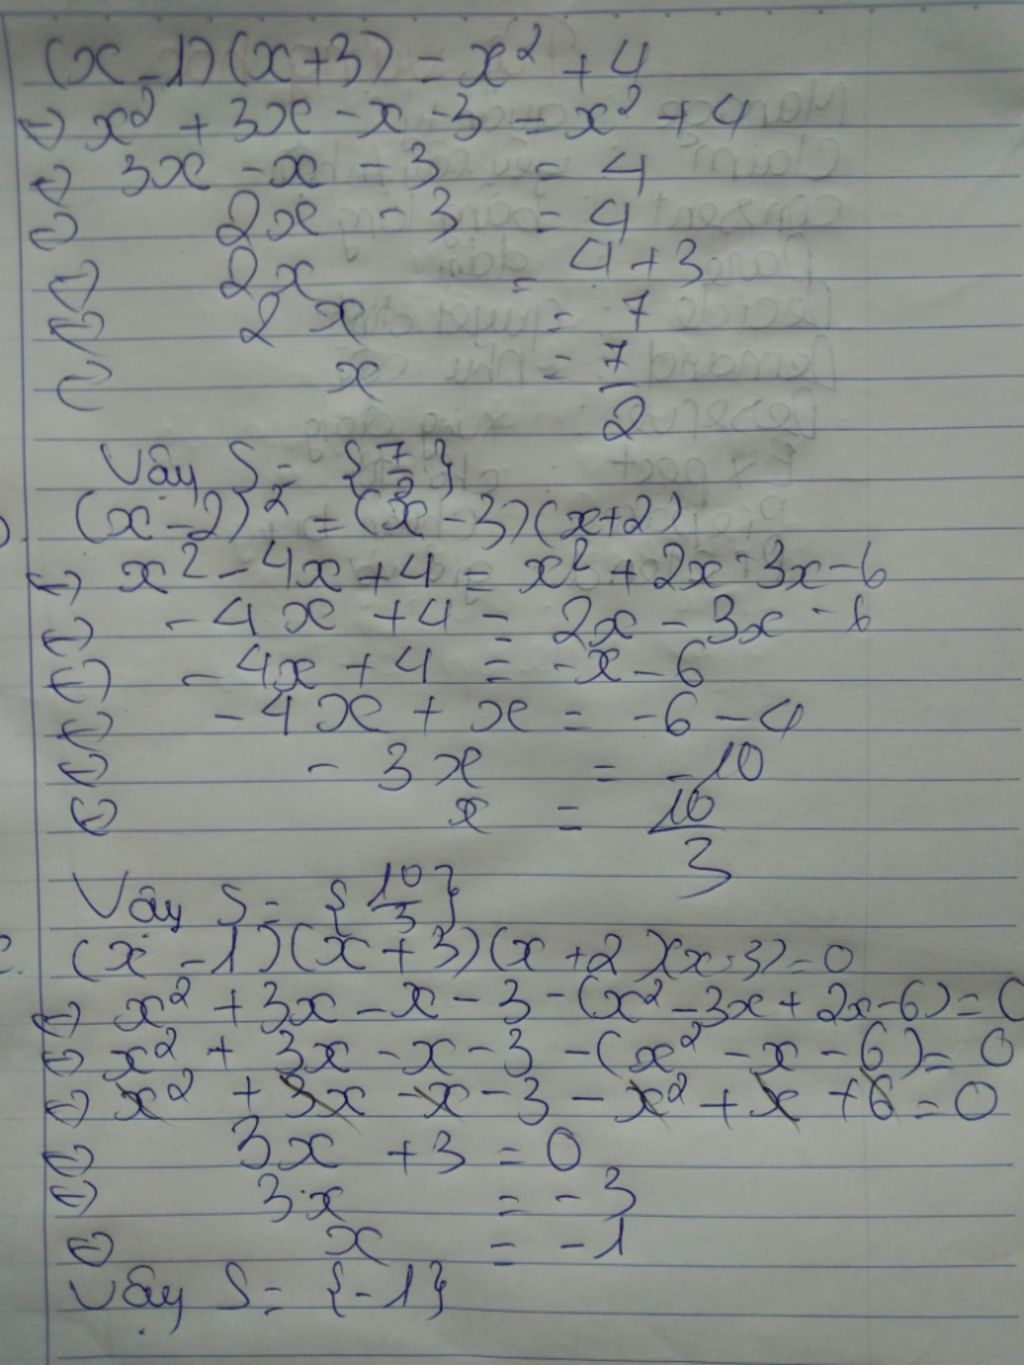 (x-1)(x+3) = x² + 4
⇔ x² + 3x - x - 3 = x² + 4
⇔ 3x - x - 3 = 4
⇔ 2x - 3 = 4
⇔ 2x = 4 + 3
⇔ 2x = 7
⇔ x = 7/2
Vậy S = {7/2}
(x-2)² = (x-3)(x+2)
⇔ x² - 4x + 4 = x² + 2x - 3x - 6
⇔ -4x + 4 = 2x - 3x - 6
⇔ -4x + 4 = -x - 6
⇔ -4x + x = -6 - 4
⇔ -3x = -10
⇔ x = 10/3
Vậy S = {10/3}
c. (x-1)(x+3)(x+2)(x-3) = 0
⇔ x² + 3x - x - 3 - (x² - 3x + 2x - 6) = 0
⇔ x² + 3x - x - 3 - (x² - x - 6) = 0
⇔ x² + 3x - x - 3 - x² + x + 6 = 0
⇔ 3x + 3 = 0
⇔ 3x = -3
⇔ x = -1
Vậy S = {-1}